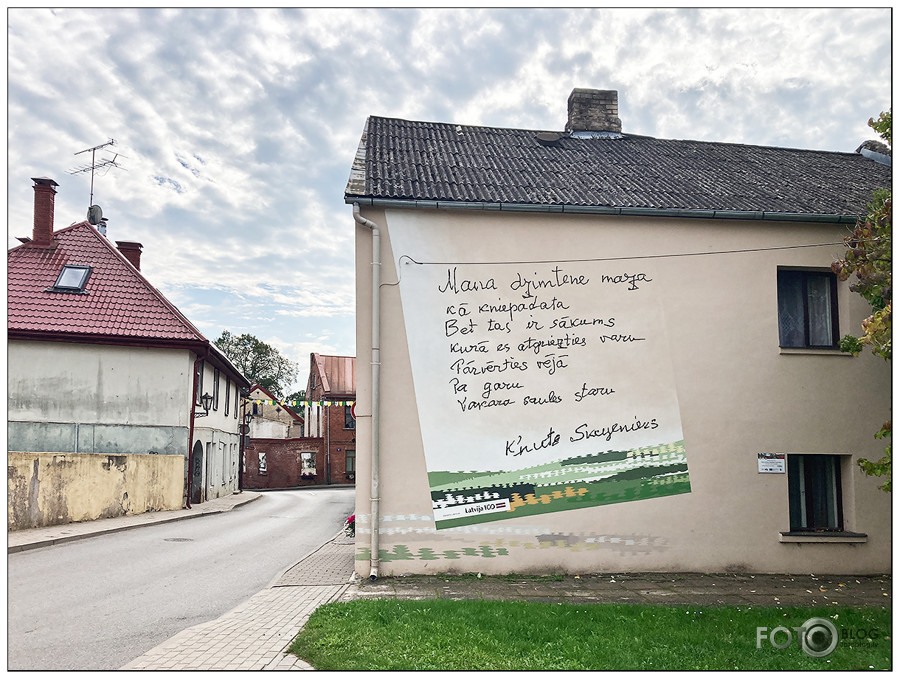 Mana dzimtene maza
kā kniepadata
Bet tas ir sākums
kurā es atgriezties varu
Pārvērties vējā
Pa garu
Vakara saules staru
Knuts Skujenieks
Latvija 100
FOTO BLOG